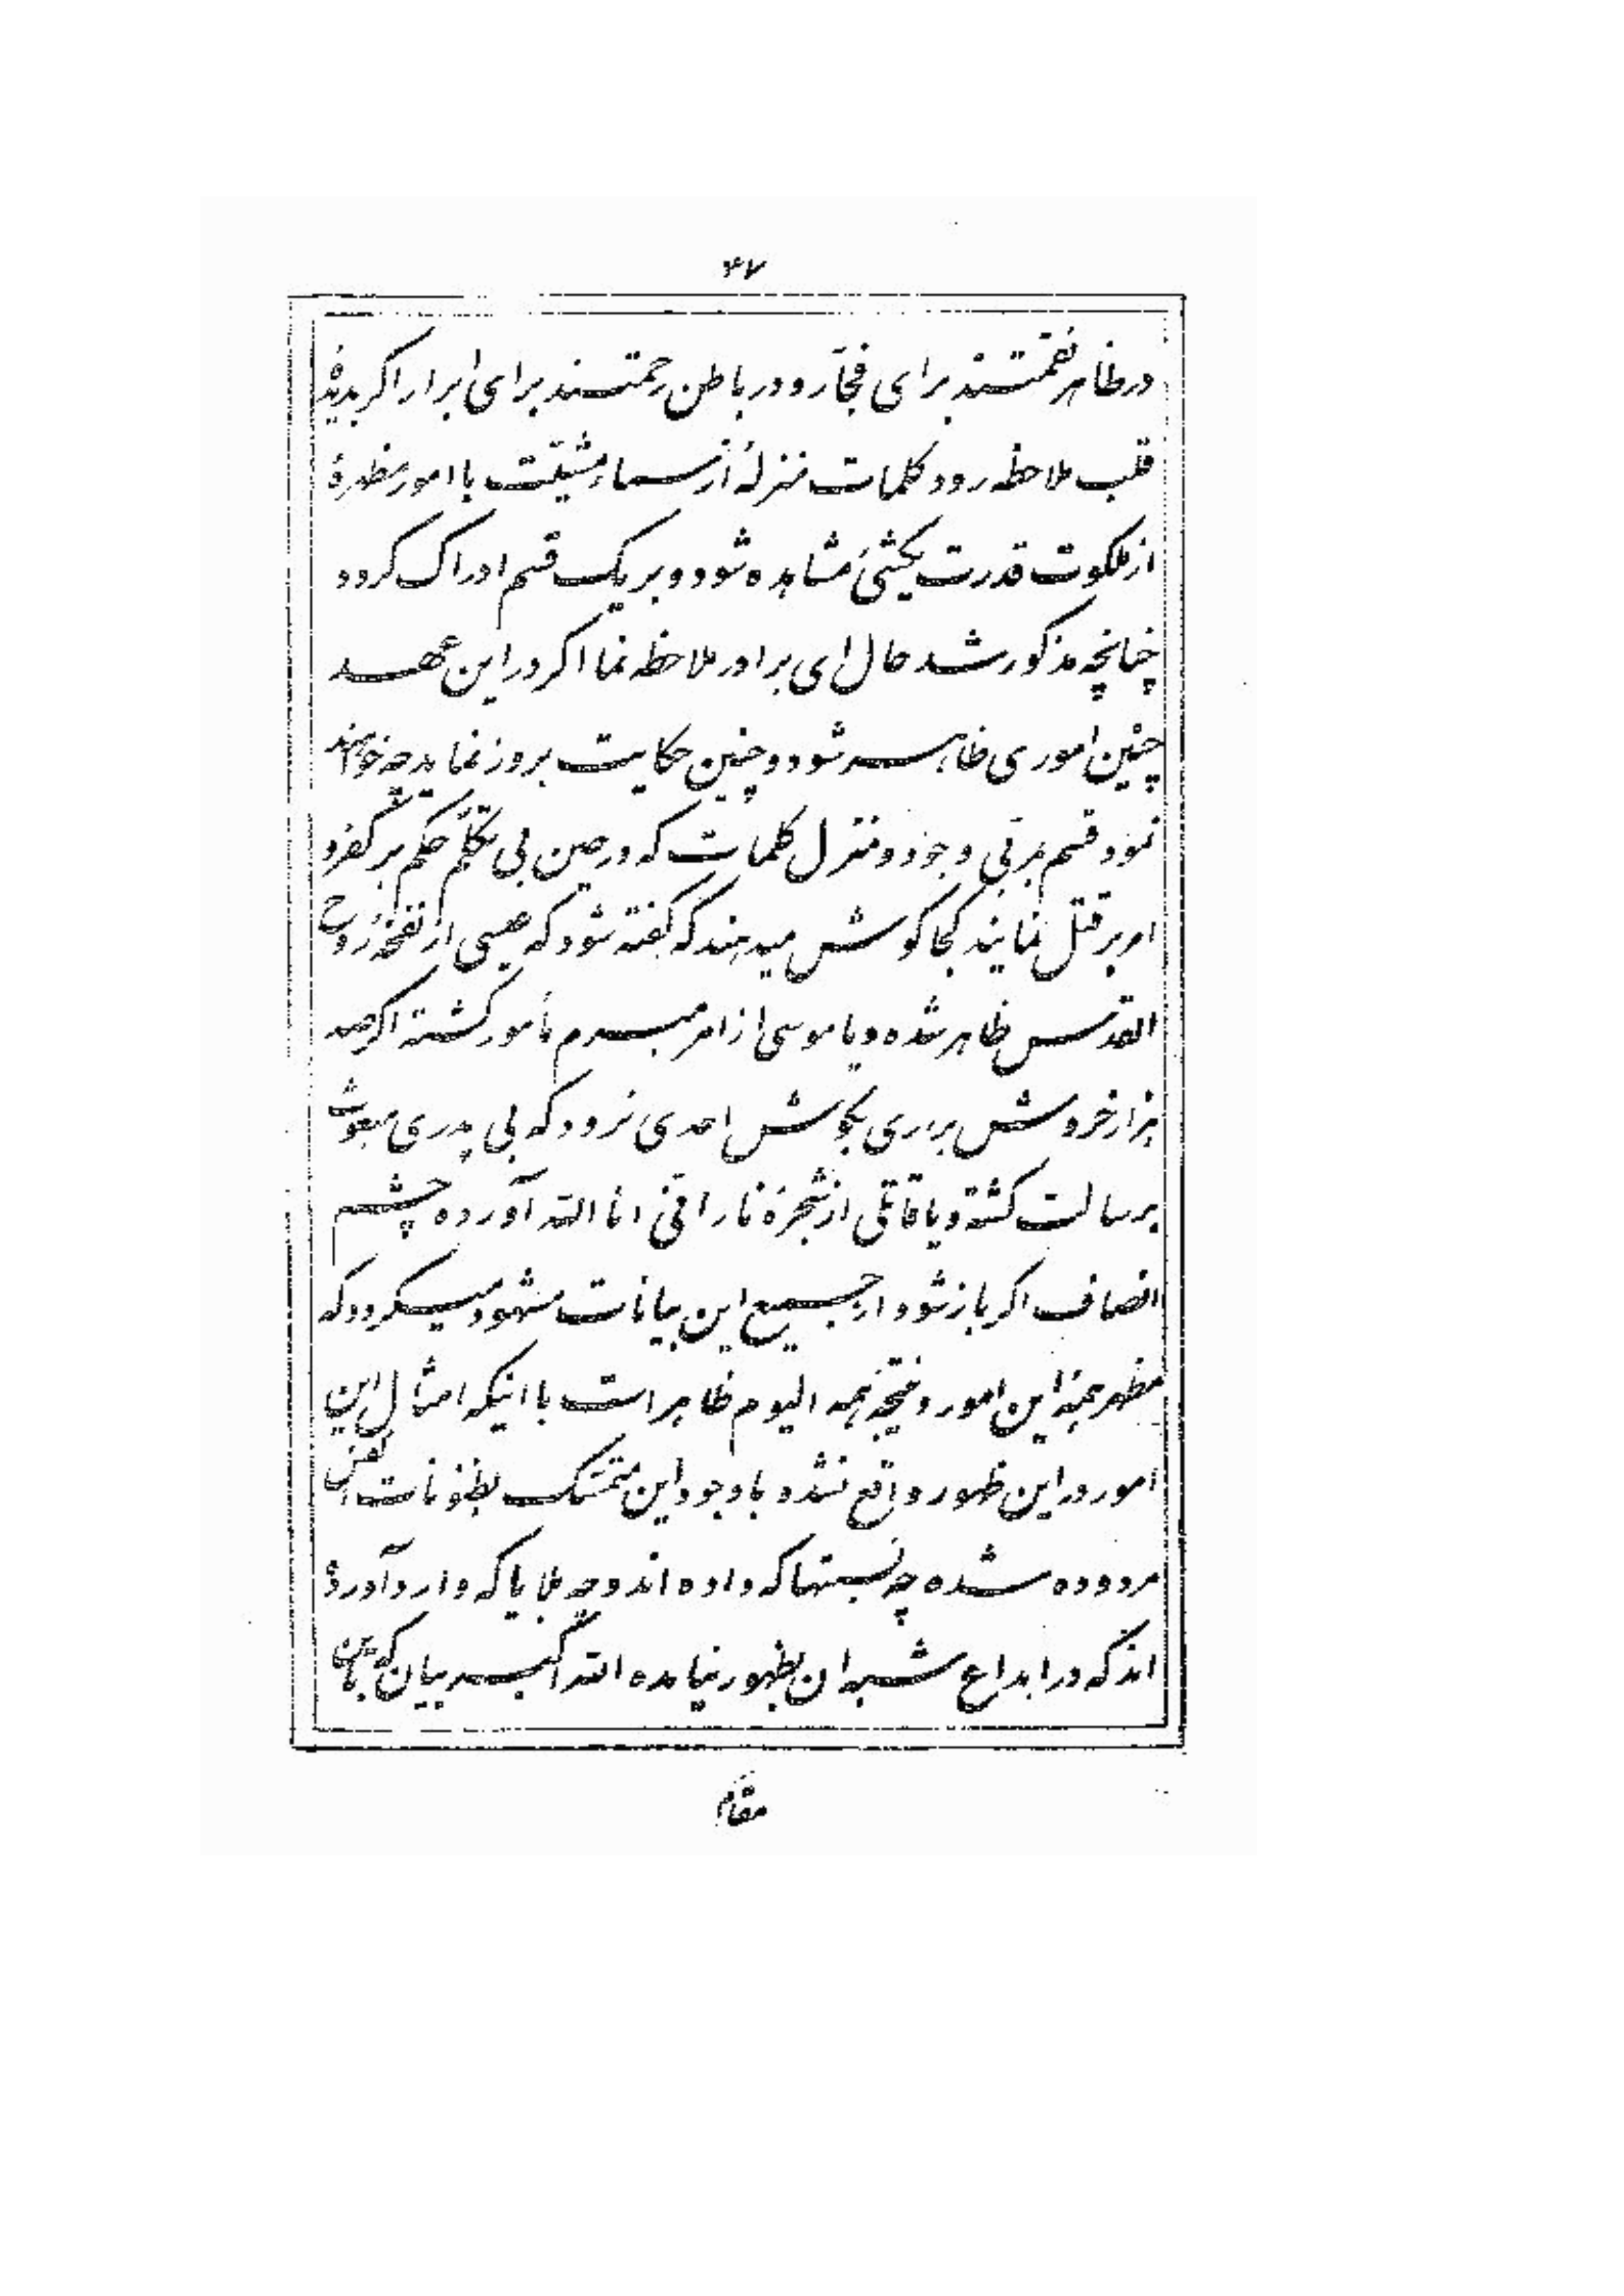 ۴۷
در ظاهر نقمتند برای فجّار و در باطن رحمتند برای ابرار اگر بدیدهٔ
قلب ملاحظه رود کلمات منزلهٔ از سماء مشیّت با امور مظهرهٔ
از ملکوت قدرت یکشیء مشاهده شود و بر یک قسم ادراک گردد
چنانچه مذکور شد حال ای برادر ملاحظه نما اگر در این عهد
چنین اموری ظاهر شود و چنین حکایت بروز نماید چه خواهند
نمود قسم بمربّی وجود و منزل کلمات که در حین بی تکلّم حکم بر کفر و
امر بر قتل نمایند کجا گوش میدهند که گفته شود که عیسی از نفخهٔ روح
القدس ظاهر شده و یا موسی از امر مبرم مأمور گشته اگر صد
هزار خروش برآری بگوش احدی نرود که بی پدری مبعوث
برسالت گشته و یا قاتلی از شجرهٔ نار انّنی انا الله آورده چشم
انصاف اگر باز شود از جمیع این بیانات مشهود میگردد که
مظهر همهٔ این امور و نتیجهٔ همه الیوم ظاهر است با اینکه امثال این
امور در این ظهور واقع نشده با وجود این متمسّک بظنونات انفس
مردوده شده چه نسبتها که داده اند و چه بلایا که وارد آورده
اند که در ابداع شبه ان بظهور نیامده الله اکبر بیان که باین
مقام